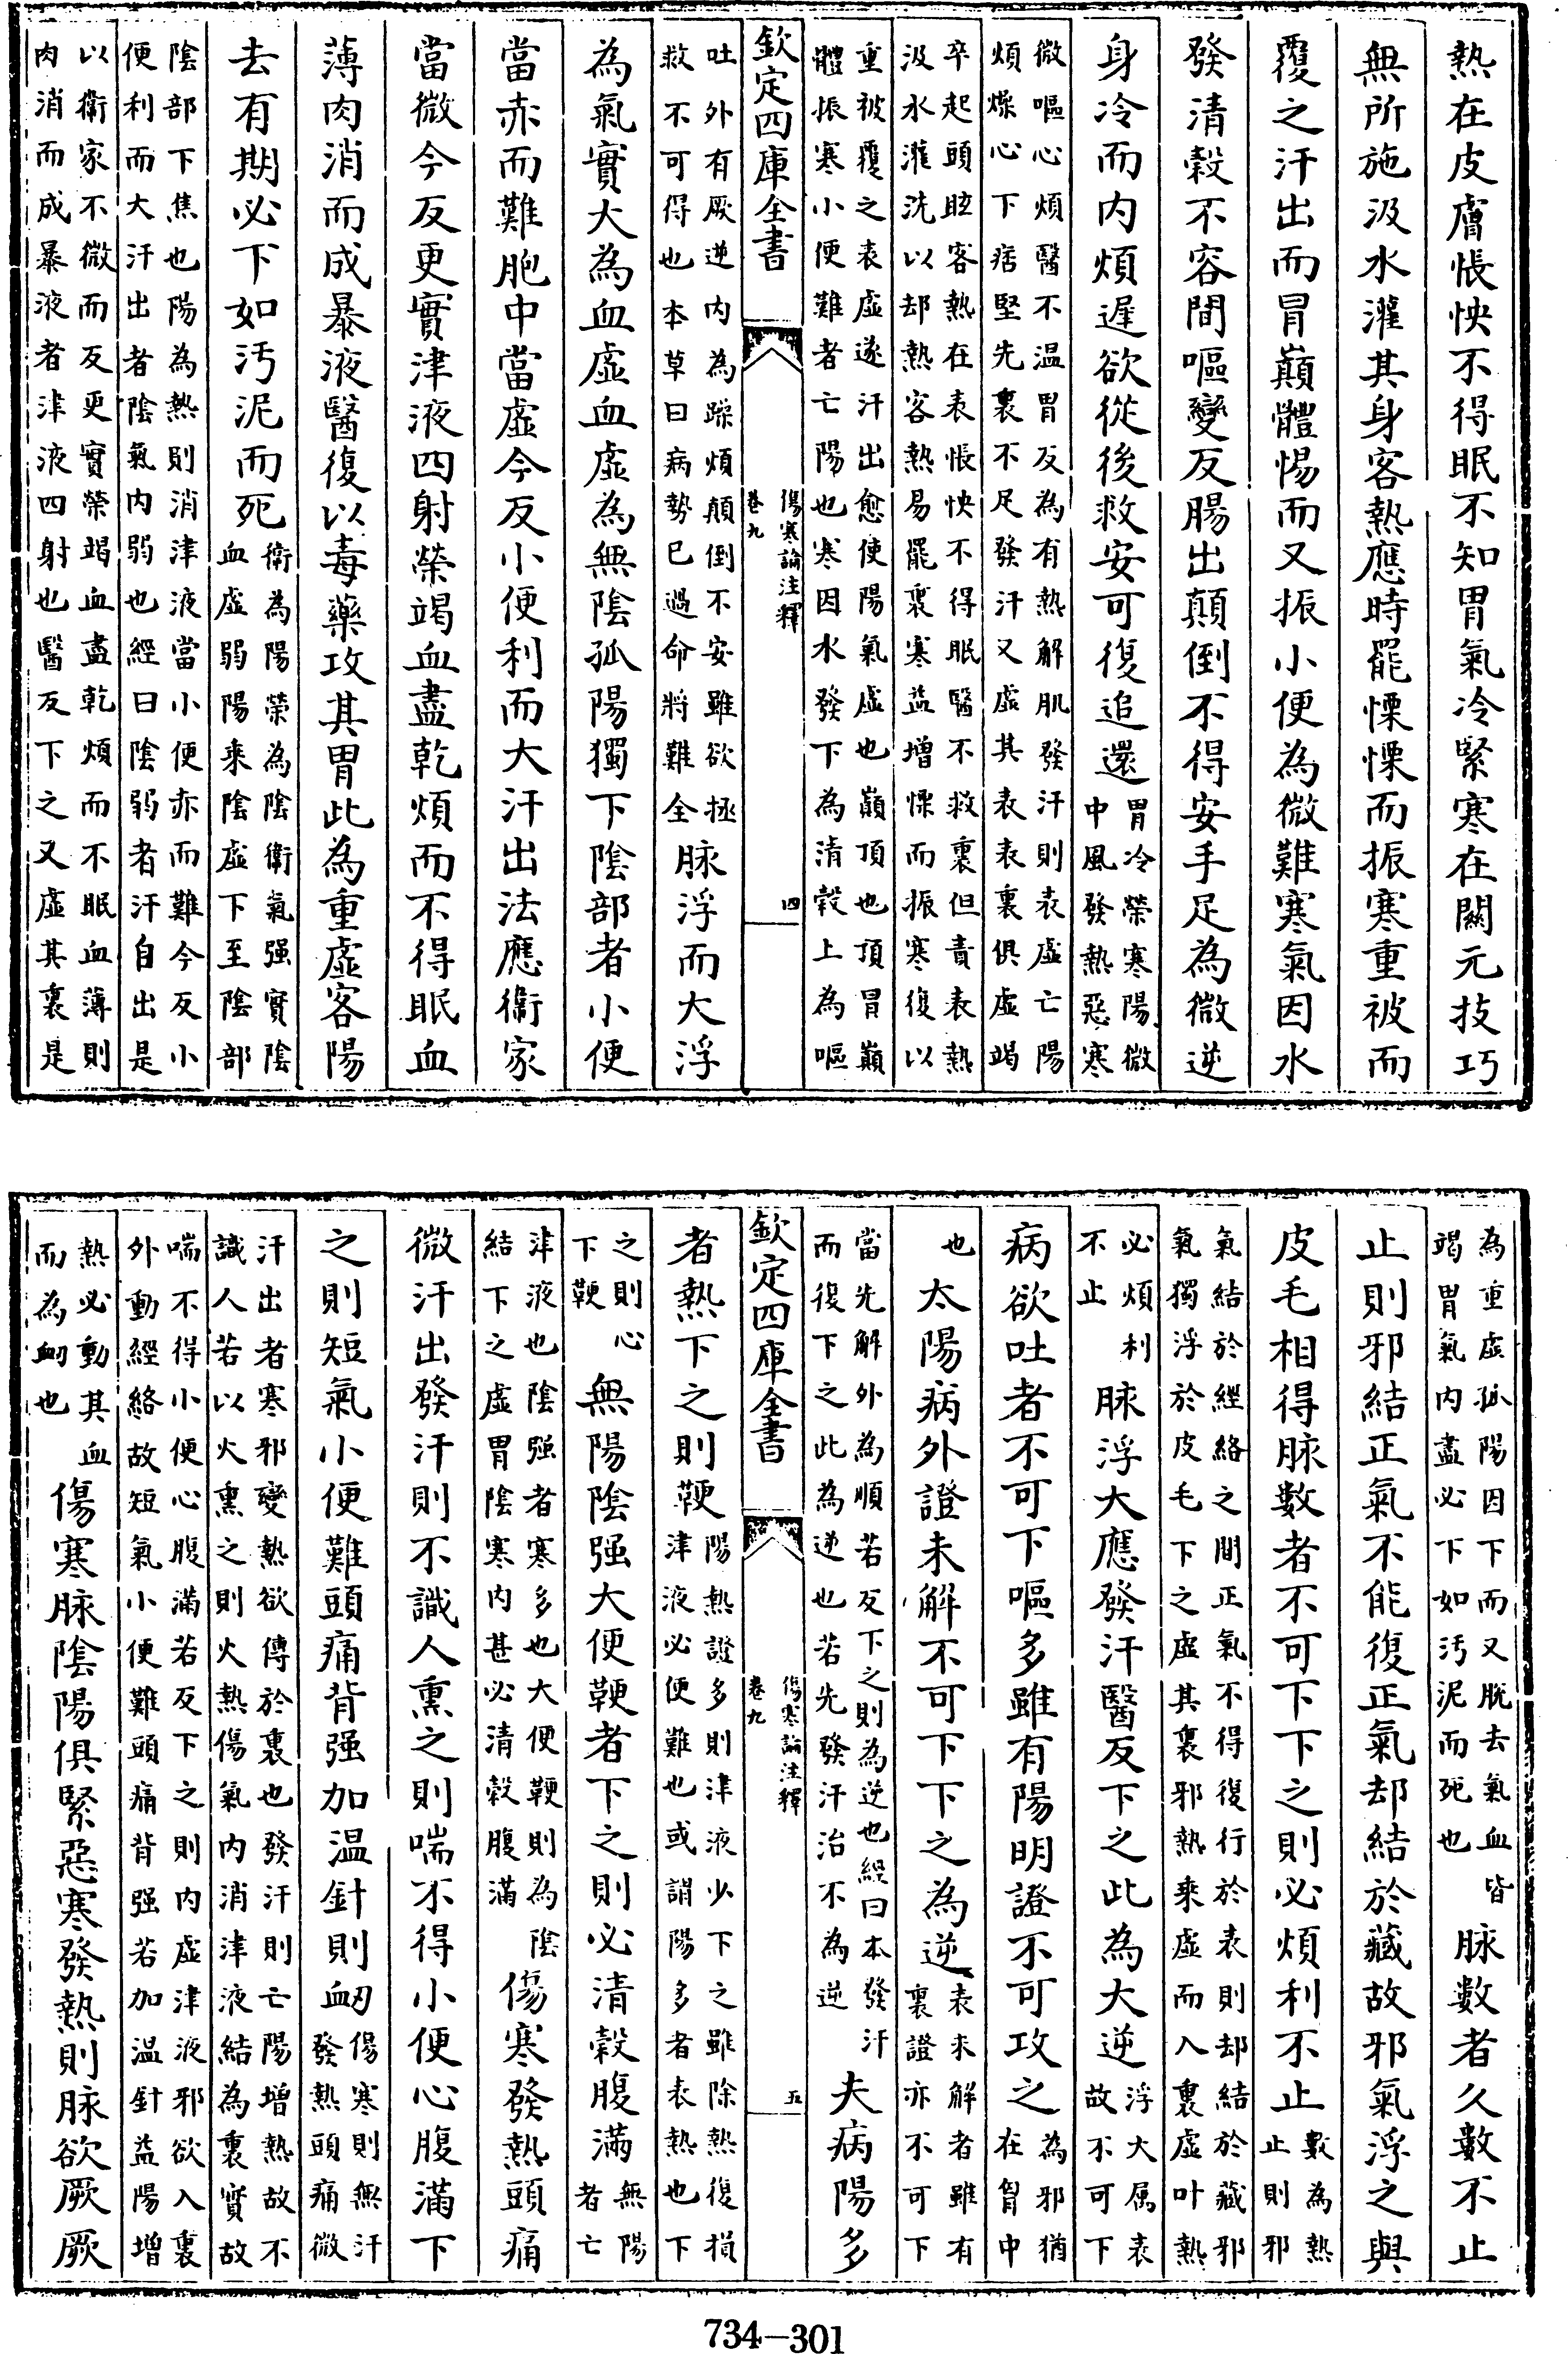 熱在皮膚悵怏不得眠不知胃氣冷緊寒在關元技巧
無所施汲水灌其身客熱應時罷慄慄而振寒重被而
覆之汗出而冒巔體惕而又振小便為微難寒氣因水
發清穀不容間嘔變反腸出顛倒不得安手足為微逆
身冷而内煩遲欲從後救安可復追還
胃冷榮寒陽微
中風發熱惡寒
微嘔心煩醫不温胃反為有熱解肌發汗則表虛亡陽
煩燥心下痞堅先裏不足發汗又虛其表表裏俱虛竭
卒起頭眩客熱在表悵怏不得眠醫不救裏但責表熱
汲水灌洗以却熱客熱易罷裏寒益增慄而振寒復以
重被覆之表虛遂汗出愈使陽氣虛也巔頂也頂冒巔
體振寒小便難者亡陽也寒因水發下為清穀上為嘔
欽定四庫全書
傷寒論注釋
卷九
四
吐外有厥逆内為躁煩顛倒不安雖欲拯
救不可得也本草曰病勢已過命將難全
脉浮而大浮
為氣實大為血虛血虛為無陰孤陽獨下陰部者小便
當赤而難胞中當虛今反小便利而大汗出法應衛家
當微今反更實津液四射榮竭血盡乾煩而不得眠血
薄肉消而成暴液醫復以毒藥攻其胃此為重虛客陽
去有期必下如汚泥而死
衛為陽榮為陰衛氣强實陰
血虛弱陽來陰虛下至陰部
陰部下焦也陽為熱則消津液當小便赤而難今反小
便利而大汗出者陰氣内弱也經曰陰弱者汗自出是
以衛家不微而反更實榮竭血盡乾煩而不眠血薄則
肉消而成暴液者津液四射也醫反下之又虛其裏是
為重虛孤陽因下而又脱去氣血皆
竭胃氣内盡必下如汚泥而死也
脉數者久數不止
止則邪結正氣不能復正氣却結於藏故邪氣浮之與
皮毛相得脉數者不可下下之則必煩利不止
數為熱
止則邪
氣結於經絡之間正氣不得復行於表則却結於藏邪
氣獨浮於皮毛下之虛其裏邪熱來虛而入裏虛叶熱
必煩利
不止
脉浮大應發汗醫反下之此為大逆
浮大属表
故不可下
病欲吐者不可下嘔多雖有陽明證不可攻之
為邪猶
在胷中
也
太陽病外證未解不可下下之為逆
表未解者雖有
裏證亦不可下
當先解外為順若反下之則為逆也經曰本發汗
而復下之此為逆也若先發汗治不為逆
夫病陽多
欽定四庫全書
傷寒論注釋
卷九
五
者熱下之則鞕
陽熱證多則津液少下之雖除熱復損
津液必便難也或謂陽多者表熱也下
之則心
下鞕
無陽陰强大便鞕者下之則必清穀腹滿
無陽
者亡
津液也陰强者寒多也大便鞕則為陰
結下之虛胃陰寒内甚必清穀腹滿
傷寒發熱頭痛
微汗出發汗則不識人熏之則喘不得小便心腹滿下
之則短氣小便難頭痛背强加温針則衂
傷寒則無汗
發熱頭痛微
汗出者寒邪變熱欲傳於裏也發汗則亡陽增熱故不
識人若以火熏之則火熱傷氣内消津液結為裏實故
喘不得小便心腹滿若反下之則内虛津液邪欲入裏
外動經絡故短氣小便難頭痛背强若加温針益陽增
熱必動其血
而為衂也
傷寒脉陰陽俱緊惡寒發熱則脉欲厥厥
734-301